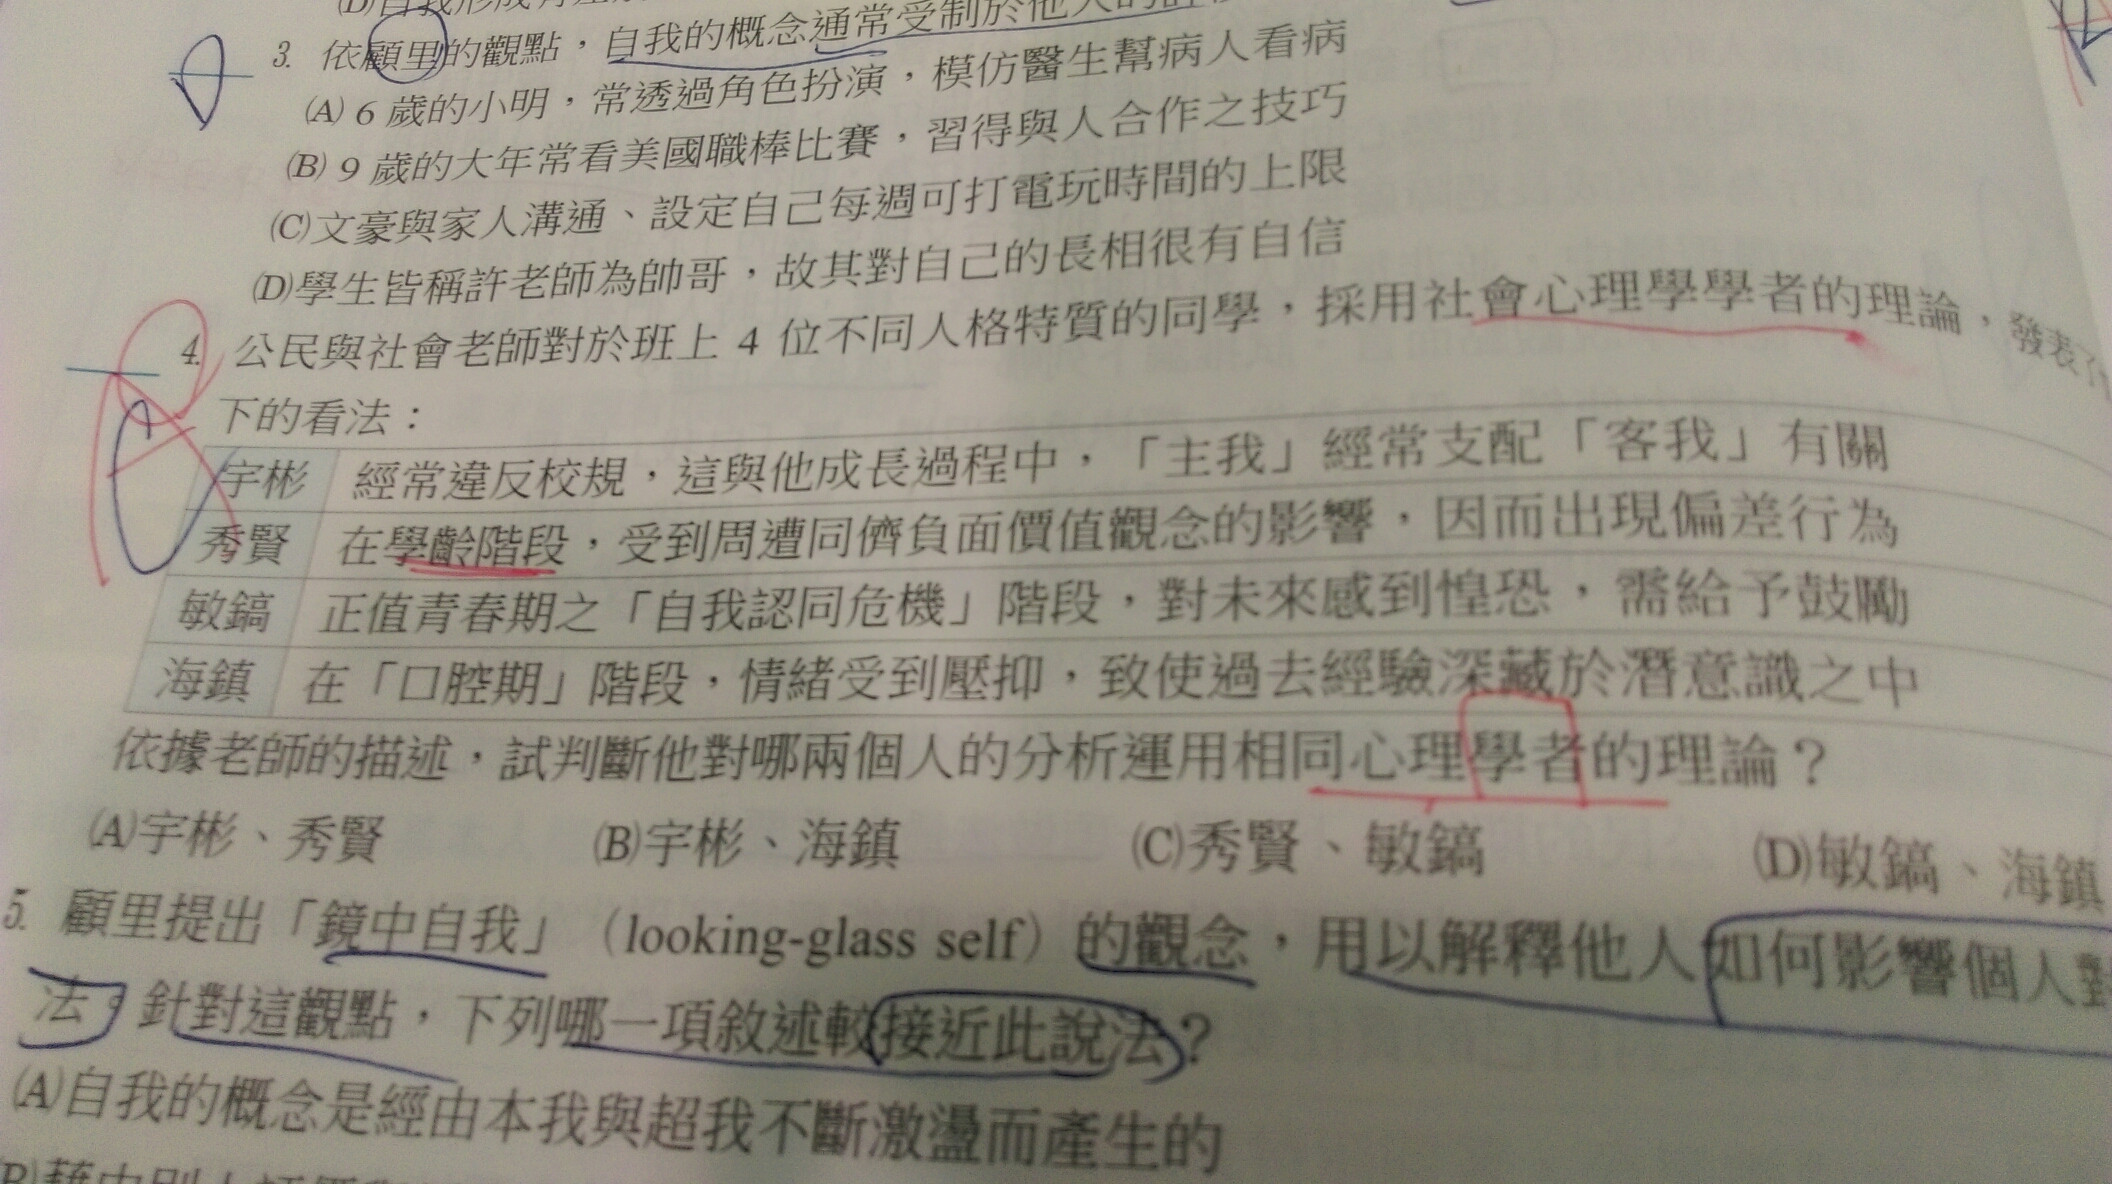 3. 依顧里的觀點，自我的概念通常受制於他人的
(A) 6 歲的小明，常透過角色扮演，模仿醫生幫病人看病
(B) 9 歲的大年常看美國職棒比賽，習得與人合作之技巧
(C)文豪與家人溝通、設定自己每週可打電玩時間的上限
(D)學生皆稱許老師為帥哥，故其對自己的長相很有自信
4. 公民與社會老師對於班上 4 位不同人格特質的同學，採用社會心理學學者的理論，發表了
下的看法：
宇彬 經常違反校規，這與他成長過程中，「主我」經常支配「客我」有關
秀賢 在學齡階段，受到周遭同儕負面價值觀念的影響，因而出現偏差行為
敏鎬 正值青春期之「自我認同危機」階段，對未來感到惶恐，需給予鼓勵
海鎮 在「口腔期」階段，情緒受到壓抑，致使過去經驗深藏於潛意識之中
依據老師的描述，試判斷他對哪兩個人的分析運用相同心理學者的理論？
(A)宇彬、秀賢 (B)宇彬、海鎮 (C)秀賢、敏鎬 (D)敏鎬、海鎮
5. 顧里提出「鏡中自我」（looking-glass self）的觀念，用以解釋他人如何影響個人對
法。針對這觀點，下列哪一項敘述較接近此說法？
(A)自我的概念是經由本我與超我不斷激盪而產生的